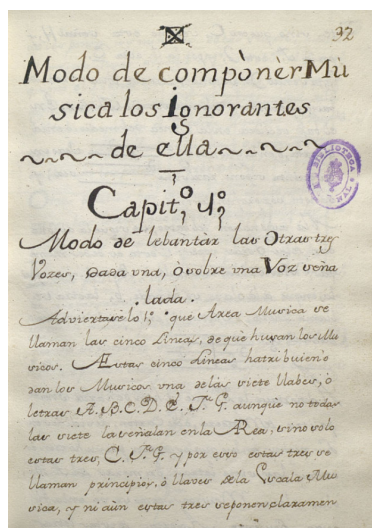 92
Modo de componèr Mù
sica los ignorantes
de ella
Capit.º 1.º
Modo de lebantàr las Otras tres
Vozes, dada vna, ò sobre vna Voz seña
lada.
Adviertase lo 1.º que Area Musica se
llaman las cinco Lineas, de que husan los Mu
sicos. A Estas cinco Lineas hatribuien ò
dan los Musicos vna de las siete llabes, ò
letras A. B. C. D. E. F. G. aunque no todas
las siete la señalan en la Area, sino solo
estas tres, C. F. G. y por esso estas tres se
llaman principios, ò llaves de la Escala Mu
sica, y ni aùn estas tres se ponen claramen
BIBLIOTECA